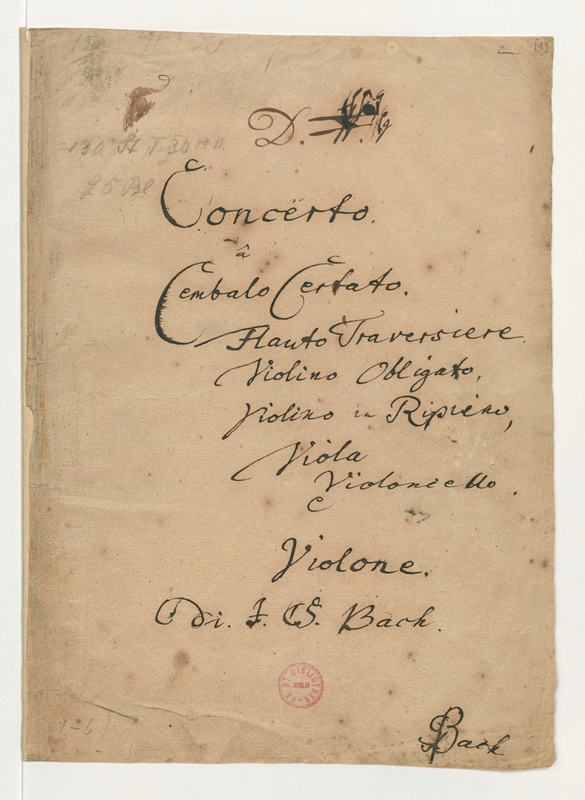 [1]
130
D. #.
130 St
25 Bl
Concerto.
â
Cembalo Certato.
Flauto Traversiere.
Violino Obligato,
Violino in Ripieno,
Viola
Violoncello.
Violone.
Di. J. S. Bach.
BIBLIOTHEK
BERLIN
1-6)
Bach